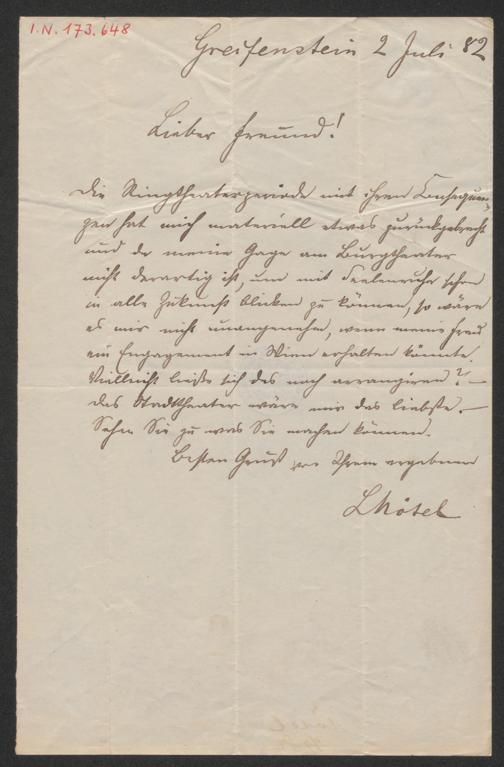 I.N. 173.648
Greifenstein 2 Juli 82
Lieber Freund!
Die Ringtheaterperiode mit ihren Consequen-
zen hat mich materiell etwas zurückgebracht
und da meine Gage am Burgtheater
nicht derartig ist, um mit Seelenruhe schon
in alle Zukunft blicken zu können, so wäre
es mir nicht unangenehm, wenn meine Frau
ein Engagement in Wien erhalten könnte.
Vielleicht ließe sich das noch arrangiren? –
Das Stadttheater wäre mir das liebste. –
Sehen Sie zu was Sie machen können.
Besten Gruß von Ihrem ergebenen